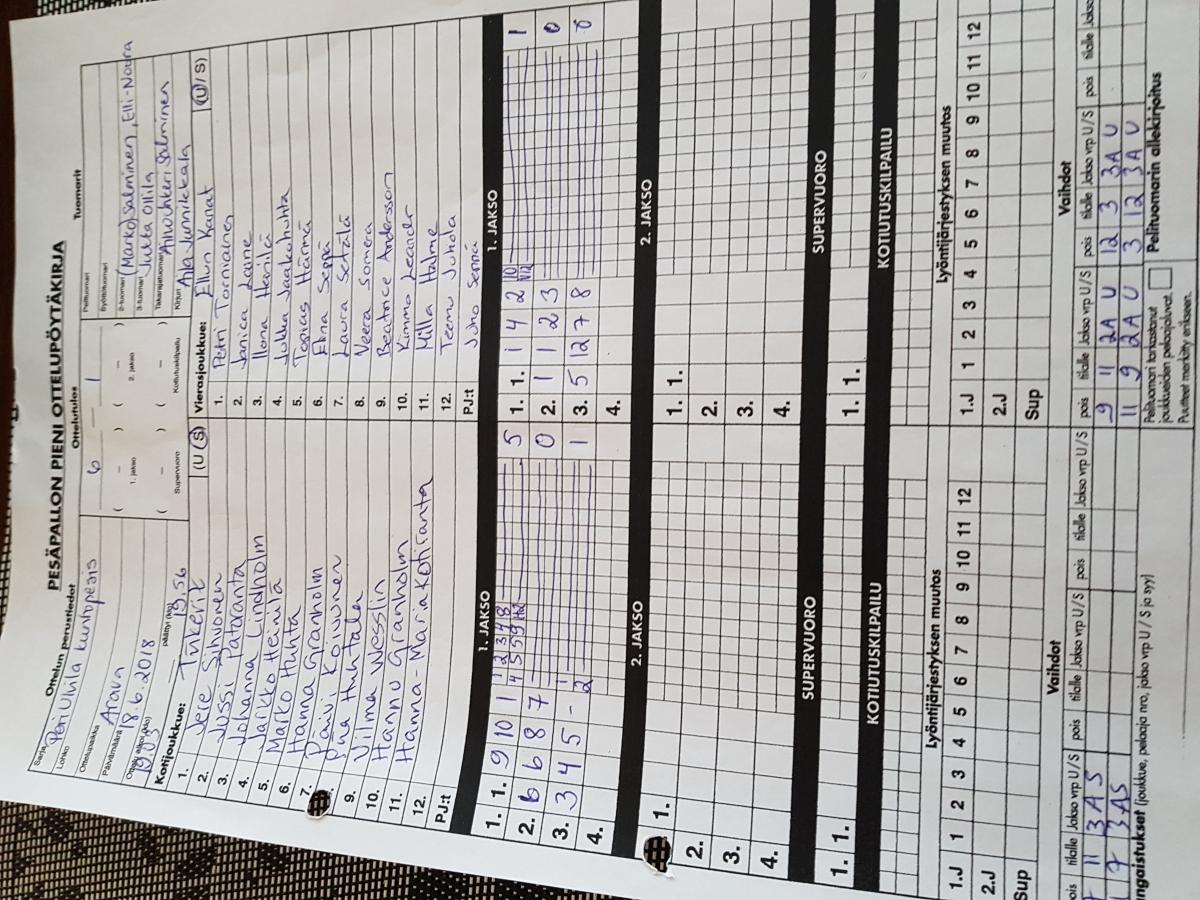 PESÄPALLON PIENI OTTELUPÖYTÄKIRJA
Ottelun perustiedot
Ottelutulos
Tuomarit
Sarja
Lohko
Petri Ulvila kuntopesis
Ottelupaikka
Arava
Päivämäärä
18.6.2018
19.03
päättyi (klo)
19.56
6 – 1
( – ) ( – )
1. jakso
2. jakso
( – ) ( – )
Supervuoro
Kotiutuskilpailu
Pelituomari
Syöttötuomari
2-tuomari (Marko) Salminen, Elli-Noora
3-tuomari Jukka Ollila
Takarajatuomari
Salminen
Kirjuri Aila Junnikkala
Kotijoukkue: Tinkerit (U/S)
1. Jere Sihvonen
2. Jussi Pataranta
3. Johanna Lindholm
4. Jarkko Heinilä
5. Marko Huhta
6. Hanna Granholm
7. Päivi Koivunen
Huhtala
9. Vilma Wesslin
10. Hannu Granholm
11. Hanna-Maria Kotiranta
12.
PJ:t
Vierasjoukkue: Ellun Kanat (U/S)
1. Petri Torniainen
2. Janica Laine
3. Ilona Heinilä
4. Jukka Jaakolahuhta
5. Tobias Härmä
6. Elina Seppä
7. Laura Setälä
8. Veera Somera
9. Beatrice Andersson
10. Kimmo Leandr
11. Milla Halme
12. Teemu Juhola
PJ:t Juho Seppä
1. JAKSO
1. JAKSO
1. 1. 9 10 1 5
2. 6 6 8 7 0
3. 3 4 5 - 1
4.
1. 1. 1 4 2 1
2. 1 1 2 3 0
3. 5 12 7 8 0
4.
2. JAKSO
2. JAKSO
1.
2.
3.
4.
1. 1.
2.
3.
4.
SUPERVUORO
SUPERVUORO
1. 1.
1. 1.
KOTIUTUSKILPAILU
KOTIUTUSKILPAILU
Lyöntijärjestyksen muutos
Lyöntijärjestyksen muutos
1.J 1 2 3 4 5 6 7 8 9 10 11 12
2.J
Sup
1.J 1 2 3 4 5 6 7 8 9 10 11 12
2.J
Sup
Vaihdot
Vaihdot
pois tilalle Jakso vrp U/S pois tilalle Jakso vrp U/S pois tilalle Jakso vrp U/S
7 11 3A S
7 3A S
pois tilalle Jakso vrp U/S pois tilalle Jakso vrp U/S pois tilalle Jakso
9 11 2A U 12 3 3A U
11 9 2A U 3 12 3A U
ngaistukset (joukkue, pelaaja nro, jakso vrp U / S ja syy)
Pelituomari tarkastanut
joukkueiden pelaajaluvat.
Puutteet merkitty erikseen.
Pelituomarin allekirjoitus